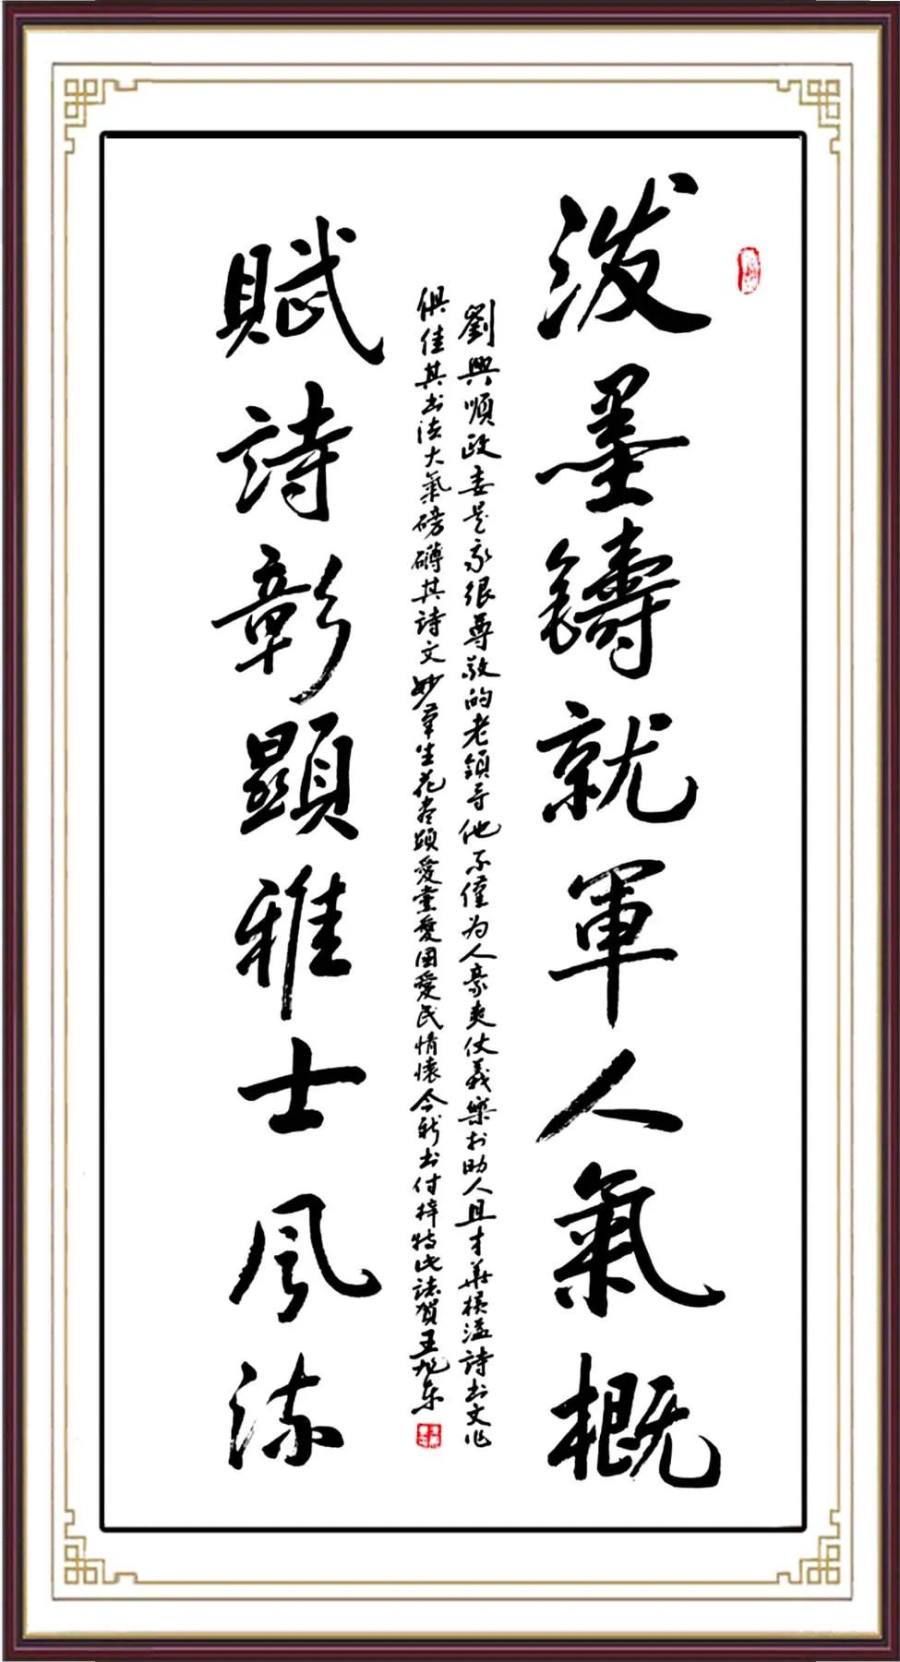 泼墨鑄就軍人氣概
劉興順政委是我很尊敬的老領导他不僅为人豪爽仗義樂於助人且才華橫溢詩书文作
俱佳其书法大氣磅礴其詩文妙筆生花尽顯愛党愛国愛民情懷今新书付梓特此誌賀王旭东
賦詩彰顯雅士風流